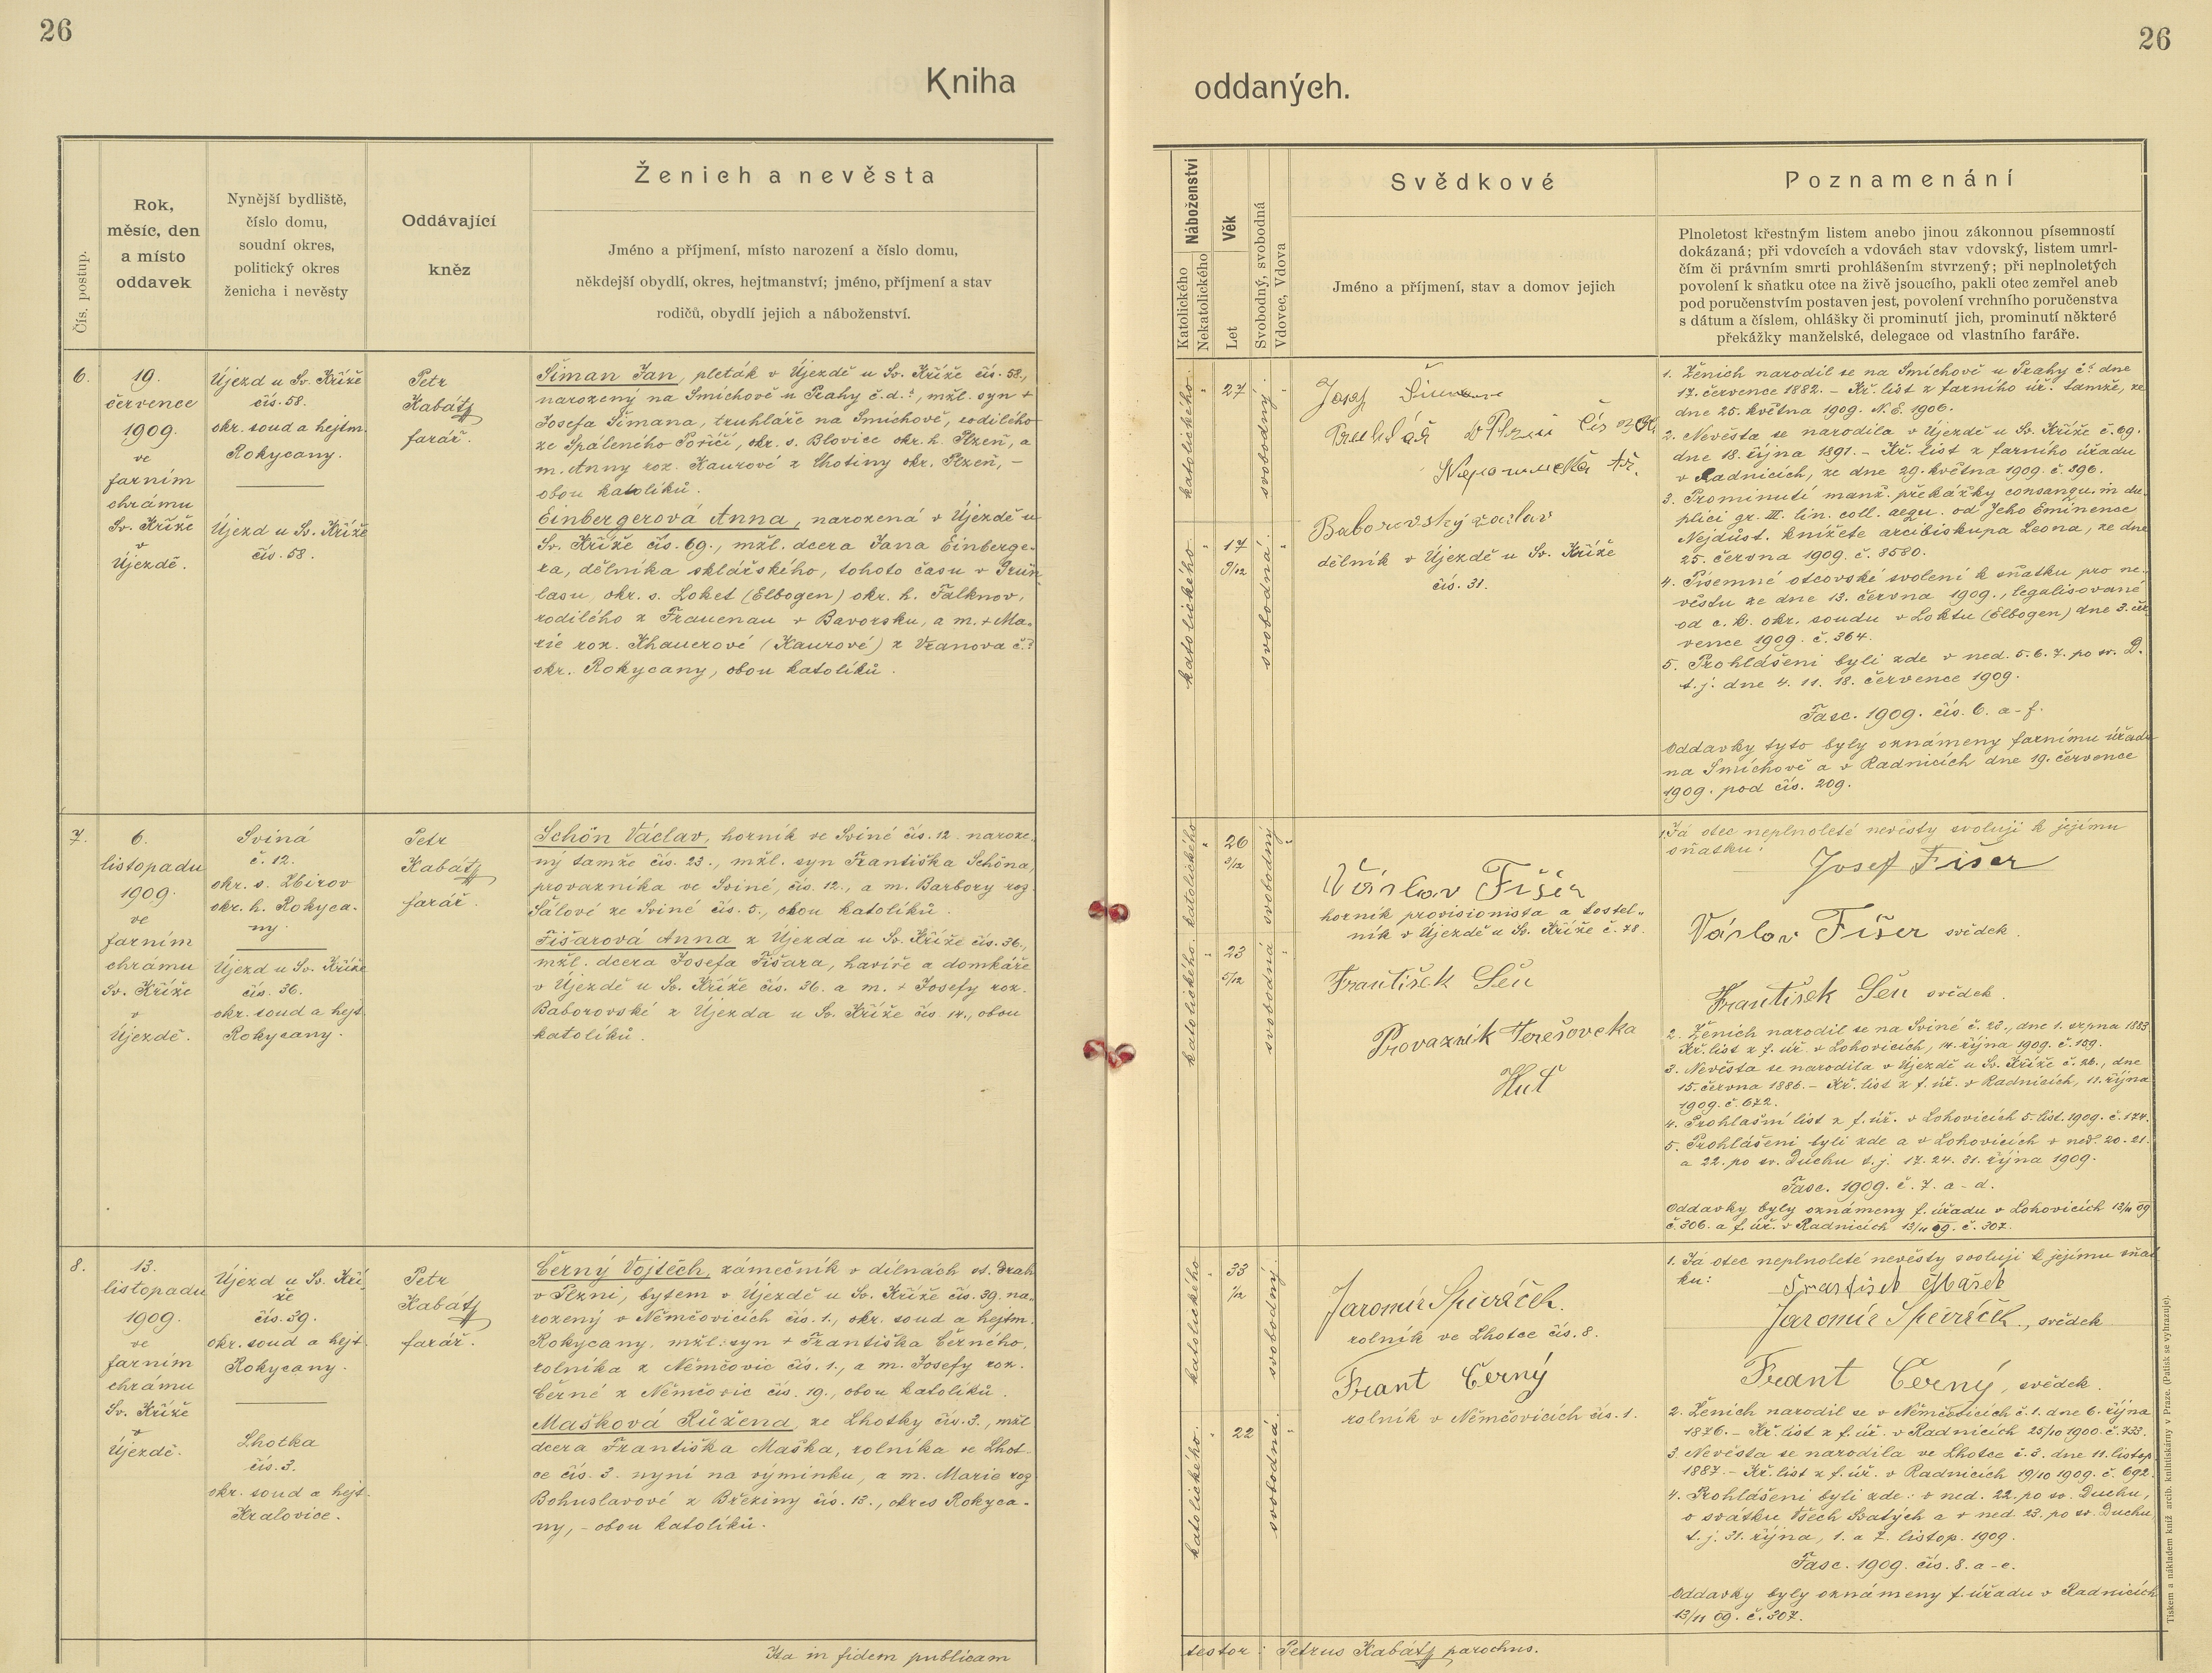 26
Kniha
Čís. postup.
Rok,
měsíc, den
a místo
oddavek
Nynější bydliště,
číslo domu,
soudní okres,
politický okres
ženicha i nevěsty
Oddávající
kněz
Ženich a nevěsta
Jméno a příjmení, místo narození a číslo domu,
někdejší obydlí, okres, hejtmanství; jméno, příjmení a stav
rodičů, obydlí jejich a náboženství.
6.
19.
července
1909.
ve
farním
chrámu
Sv. Kříže
v
Újezdě.
Újezd u Sv. Kříže
čís. 58.
okr. soud a hejtm.
Rokycany.
Újezd u Sv. Kříže
čís. 58.
Petr
Kabátz
farář.
Šiman Jan, pleták v Újezdě u Sv. Kříže čís. 58.,
narozený na Smíchově u Prahy č.d.?, mžl. syn +
Josefa Šimana, truhláře na Smíchově, rodilého
ze Spáleného Poříčí, okr. s. Blovice okr. h. Plzeň, a
m. Anny roz. Kaurové z Lhotiny okr. Plzeň, –
obou katolíků.
Einbergerová Anna, narozená v Újezdě u
Sv. Kříže čís. 69., mžl. dcera Jana Einberge-
ra, dělníka sklářského, tohoto času v Grün-
lasu, okr. s. Loket (Elbogen) okr. h. Falknov,
rodilého z Frauenau v Bavorsku, a m. + Ma-
rie roz. Khauerové (Kaurové) z Vranova č.?
okr. Rokycany, obou katolíků.
7.
6.
listopadu
1909.
ve
farním
chrámu
Sv. Kříže
v
Újezdě.
Sviná
č. 12.
okr. s. Zbirov
okr. h. Rokyca-
ny.
Újezd u Sv. Kříže
čís. 36.
okr. soud a hejt.
Rokycany.
Petr
Kabátz
farář.
Schön Václav, horník ve Sviné čís. 12. naroze-
ný tamže čís. 23., mžl. syn Františka Schöna,
provazníka ve Sviné, čís. 12., a m. Barbory roz.
Šálové ze Sviné čís. 5., obou katolíků.
Fišarová Anna z Újezda u Sv. Kříže čís. 36.,
mžl. dcera Josefa Fišara, havíře a domkáře
v Újezdě u Sv. Kříže čís. 36. a m. + Josefy roz.
Baborovské z Újezda u Sv. Kříže čís. 14., obou
katolíků.
8.
13.
listopadu
1909.
ve
farním
chrámu
Sv. Kříže
v
Újezdě.
Újezd u Sv. Kří-
že
čís. 39.
okr. soud a hejt.
Rokycany.
Lhotka
čís. 3.
okr. soud a hejt.
Kralovice.
Petr
Kabátz
farář.
Černý Vojtěch, zámečník v dílnách st. drah
v Plzni, bytem v Újezdě u Sv. Kříže čís. 39. na-
rozený v Němčovicích čís. 1., okr. soud a hejtm.
Rokycany, mžl. syn + Františka Černého,
rolníka z Němčovic čís. 1., a m. Josefy roz.
Černé z Němčovic čís. 19., obou katolíků.
Mašková Růžena, ze Lhotky čís. 3., mžl.
dcera Františka Maška, rolníka ve Lhot-
ce čís. 3. nyní na výminku, a m. Marie roz
Bohuslavové z Březiny čís. 13., okres Rokyca-
ny, – obou katolíků.
Ita in fidem publicam
26
oddaných.
Náboženství
Katolického
Nekatolického
Věk
Let
Svobodný, svobodná
Vdovec, Vdova
Svědkové
Jméno a příjmení, stav a domov jejich
Poznamenání
Plnoletost křestným listem anebo jinou zákonnou písemností
dokázaná; při vdovcích a vdovách stav vdovský, listem umrl-
čím či právním smrti prohlášením stvrzený; při neplnoletých
povolení k sňatku otce na živě jsoucího, pakli otec zemřel aneb
pod poručenstvím postaven jest, povolení vrchního poručenstva
s dátum a číslem, ohlášky či prominutí jich, prominutí některé
překážky manželské, delegace od vlastního faráře.
katolického.
27
svobodný.
katolického.
17
9/12
svobodná.
Josef Šiman
Truhlář v Plzni čís
Nepomucká tř.
Baborovský Václav
dělník v Újezdě u Sv. Kříže
čís. 31.
1. Ženich narodil se na Smíchově u Prahy č.? dne
17. července 1882. – Kř. list z farního úř. tamže, ze
dne 25. května 1909. N.E. 1906.
2. Nevěsta se narodila v Újezdě u Sv. Kříže č. 69.
dne 18. října 1891. – Kř. list z farního úřadu
v Radnicích, ze dne 29. května 1909. č. 396.
3. Prominutí manž. překážky consangu. in du-
plici gr. III. lin. coll. aequ. od Jeho Eminence
Nejdůst. knížete arcibiskupa Leona, ze dne
25. června 1909. č. 8580.
4. Písemné otcovské svolení k sňatku pro ne-
věstu ze dne 13. června 1909., legalisované
od c. k. okr. soudu v Loktu (Elbogen) dne 3. čer-
vence 1909. č. 364.
5. Prohlášeni byli zde v ned. 5. 6. 7. po sv. D.
t. j. dne 4. 11. 18. července 1909.
Fasc. 1909. čís. 6. a-f.
Oddavky tyto byly oznámeny farnímu úřadu
na Smíchově a v Radnicích dne 19. července
1909. pod čís. 209.
katolického
26
3/12
svobodný
katolického.
23
5/12
svobodná
Václav Fišer
horník provisionista a kostel-
ník v Újezdě u Sv. Kříže č. 78.
František Šén
Provazník Terešovcka
Huť
1. Já otec neplnoleté nevěsty svoluji k jejímu
sňatku:
Josef Fišer
Václav Fišer svědek.
František Šén svědek.
2. Ženich narodil se na Sviné č. 23., dne 1. srpna 1883.
Kř. list z f. úř. v Lohovicích, 14. října 1909. č. 159.
3. Nevěsta se narodila v Újezdě u Sv. Kříže č. 26., dne
15. června 1886. – Kř. list z f. úř. v Radnicích, 11. října
1909. č. 672.
4. Prohlašní list z f. úř. v Lohovicích 5. list. 1909. č. 174.
5. Prohlášeni byli zde a v Lohovicích v ned. 20. 21.
a 22. po sv. Duchu t. j. 17. 24. 31. října 1909.
Fasc. 1909. č. 7. a-d.
Oddavky byly oznámeny f. úřadu v Lohovicích 13/11 09
č. 306. a f. úř. v Radnicích 13/11 09. č. 307.
katolického
33
1/12
svobodný.
katolického.
22
svobodná.
Jaromír Spěváček.
rolník ve Lhotce čís. 8.
Frant Černý
rolník v Němčovicích čís. 1.
1. Já otec neplnoleté nevěsty svoluji k jejímu sňat
ku:
František Mašek
Jaromír Spěváček., svědek
Frant Černý, svědek.
2. Ženich narodil se v Němčovicích č. 1. dne 6. října
1876. – Kř. list z f. úř. v Radnicích 25/10 1900. č. 733.
3. Nevěsta se narodila ve Lhotce č. 3. dne 11. listop.
1887. – Kř. list z f. úř. v Radnicích 19/10 1909. č. 692.
4. Prohlášeni byli zde: v ned. 22. po sv. Duchu,
o svátku Všech Svatých a v ned. 23. po sv. Duchu
t. j. 31. října, 1. a 7. listop. 1909.
Fasc. 1909. čís. 8. a-e.
Oddavky byly oznámeny f. úřadu v Radnicích
13/11 09. č. 307.
testor: Petrus Kabátz parochus.
Tiskem a nákladem kníž. arcib. knihtiskárny v Praze. (Patisk se vyhrazuje).